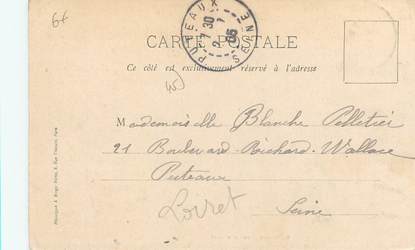 6€
PUTEAUX
SEINE
CARTE POSTALE
Ce côté est exclusivement réservé à l'adresse
Mademoiselle Blanche Pelletier
21 Boulevard Richard-Wallace
Puteaux
Seine
Loiret